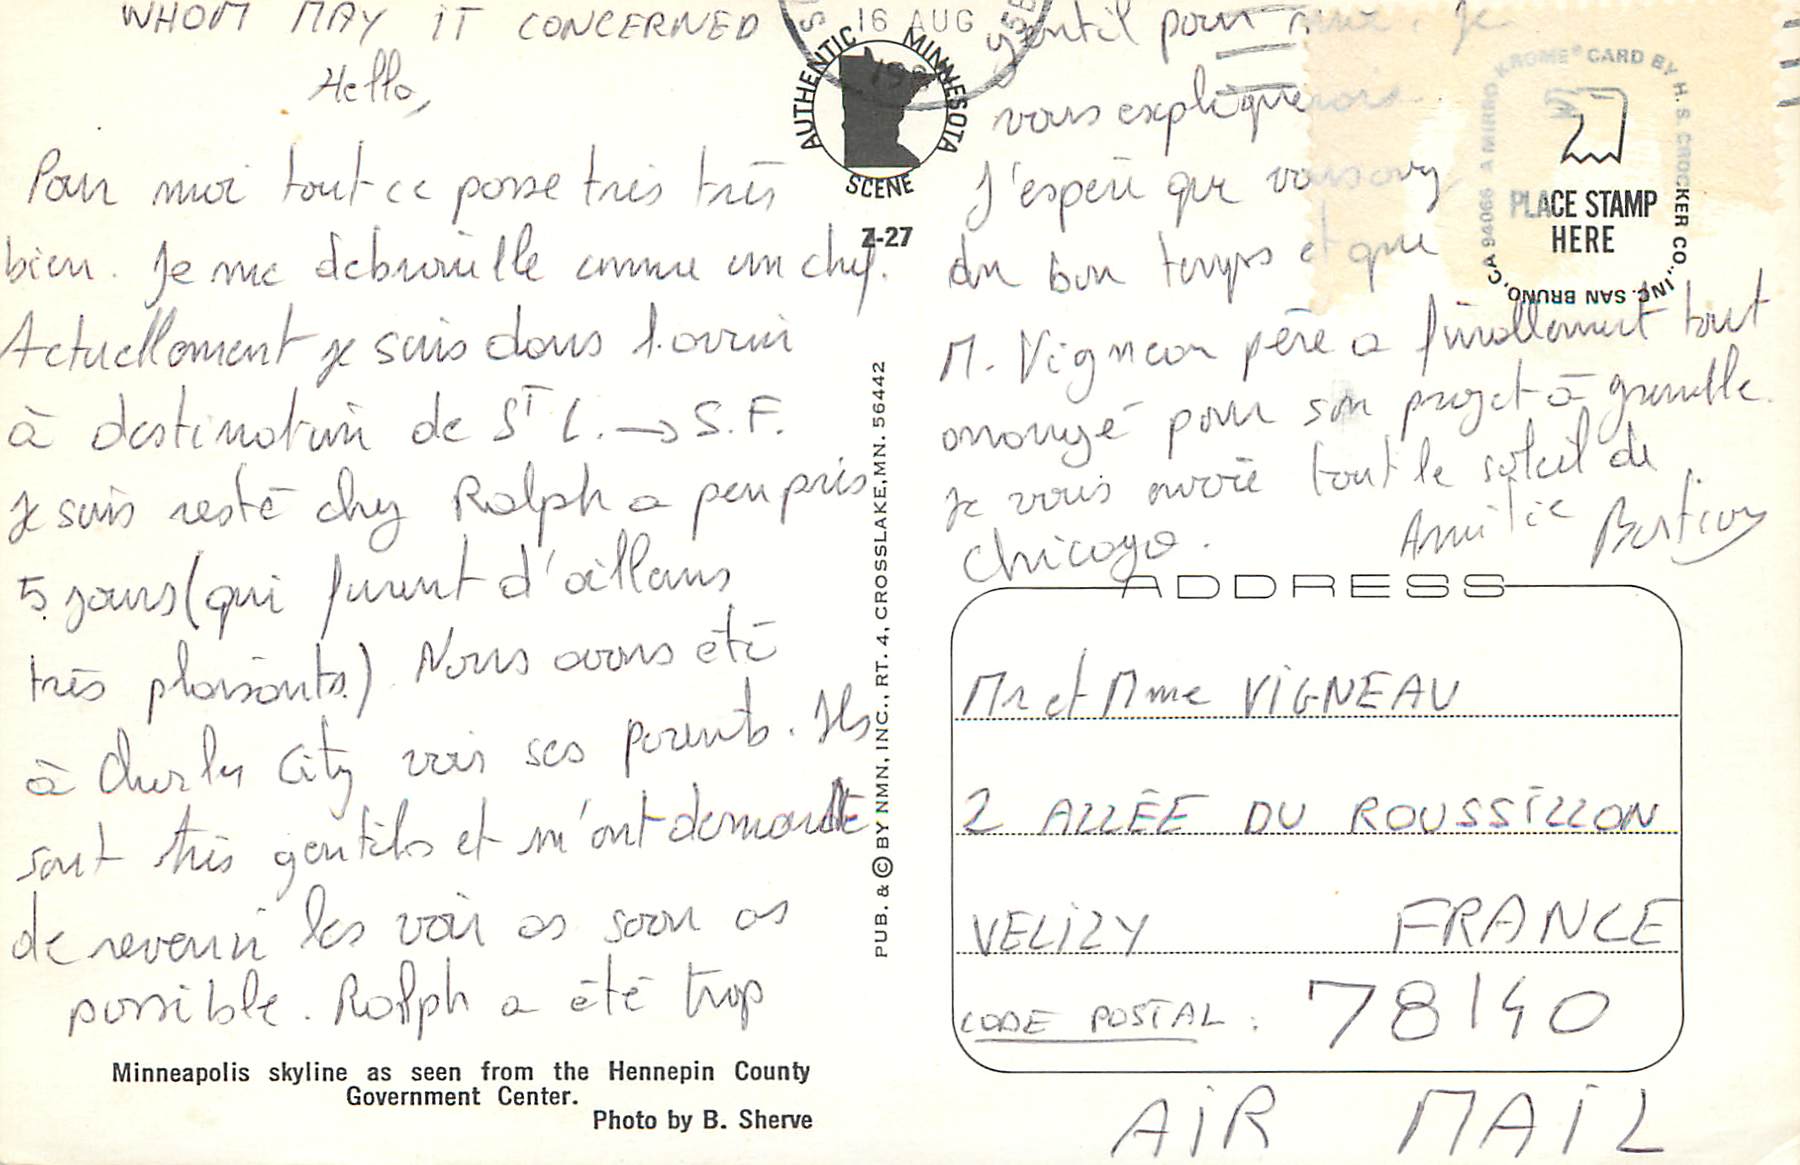 WHOM MAY IT CONCERNED
Hello,
Pour moi tout ce passe très très
bien. Je me debrouille comme un chef.
Actuellement je suis dans l'avion
à destination de S^T L. → S.F.
Je suis resté chez Ralph a peu près
5 jours (qui furent d'ailleurs
très plaisants.) Nous avons été
à City voir ses parents. Ils
sont très gentils et m'ont demandé
de revenir les voir as soon as
possible. Ralph a été trop
gentil pour moi. Je
vous expliquerais.
J'espère que vous avez
du bon temps et que
M. Vigneau père a finallement tout
arrangé pour son projet à grenelle.
Je vous envoie tout le soleil de
Chicago.
Amitié
16 AUG
AUTHENTIC MINNESOTA
SCENE
Z-27
A MIRRO KROME® CARD BY H. S. CROCKER CO., INC. SAN BRUNO, CA 94066
PLACE STAMP
HERE
PUB. & © BY NMN, INC., RT. 4, CROSSLAKE, MN. 56442
ADDRESS
Mr et Mme VIGNEAU
2 ALLÉE DU ROUSSILLON
VELIZY FRANCE
CODE POSTAL : 78140
AIR MAIL
Minneapolis skyline as seen from the Hennepin County
Government Center.
Photo by B. Sherve